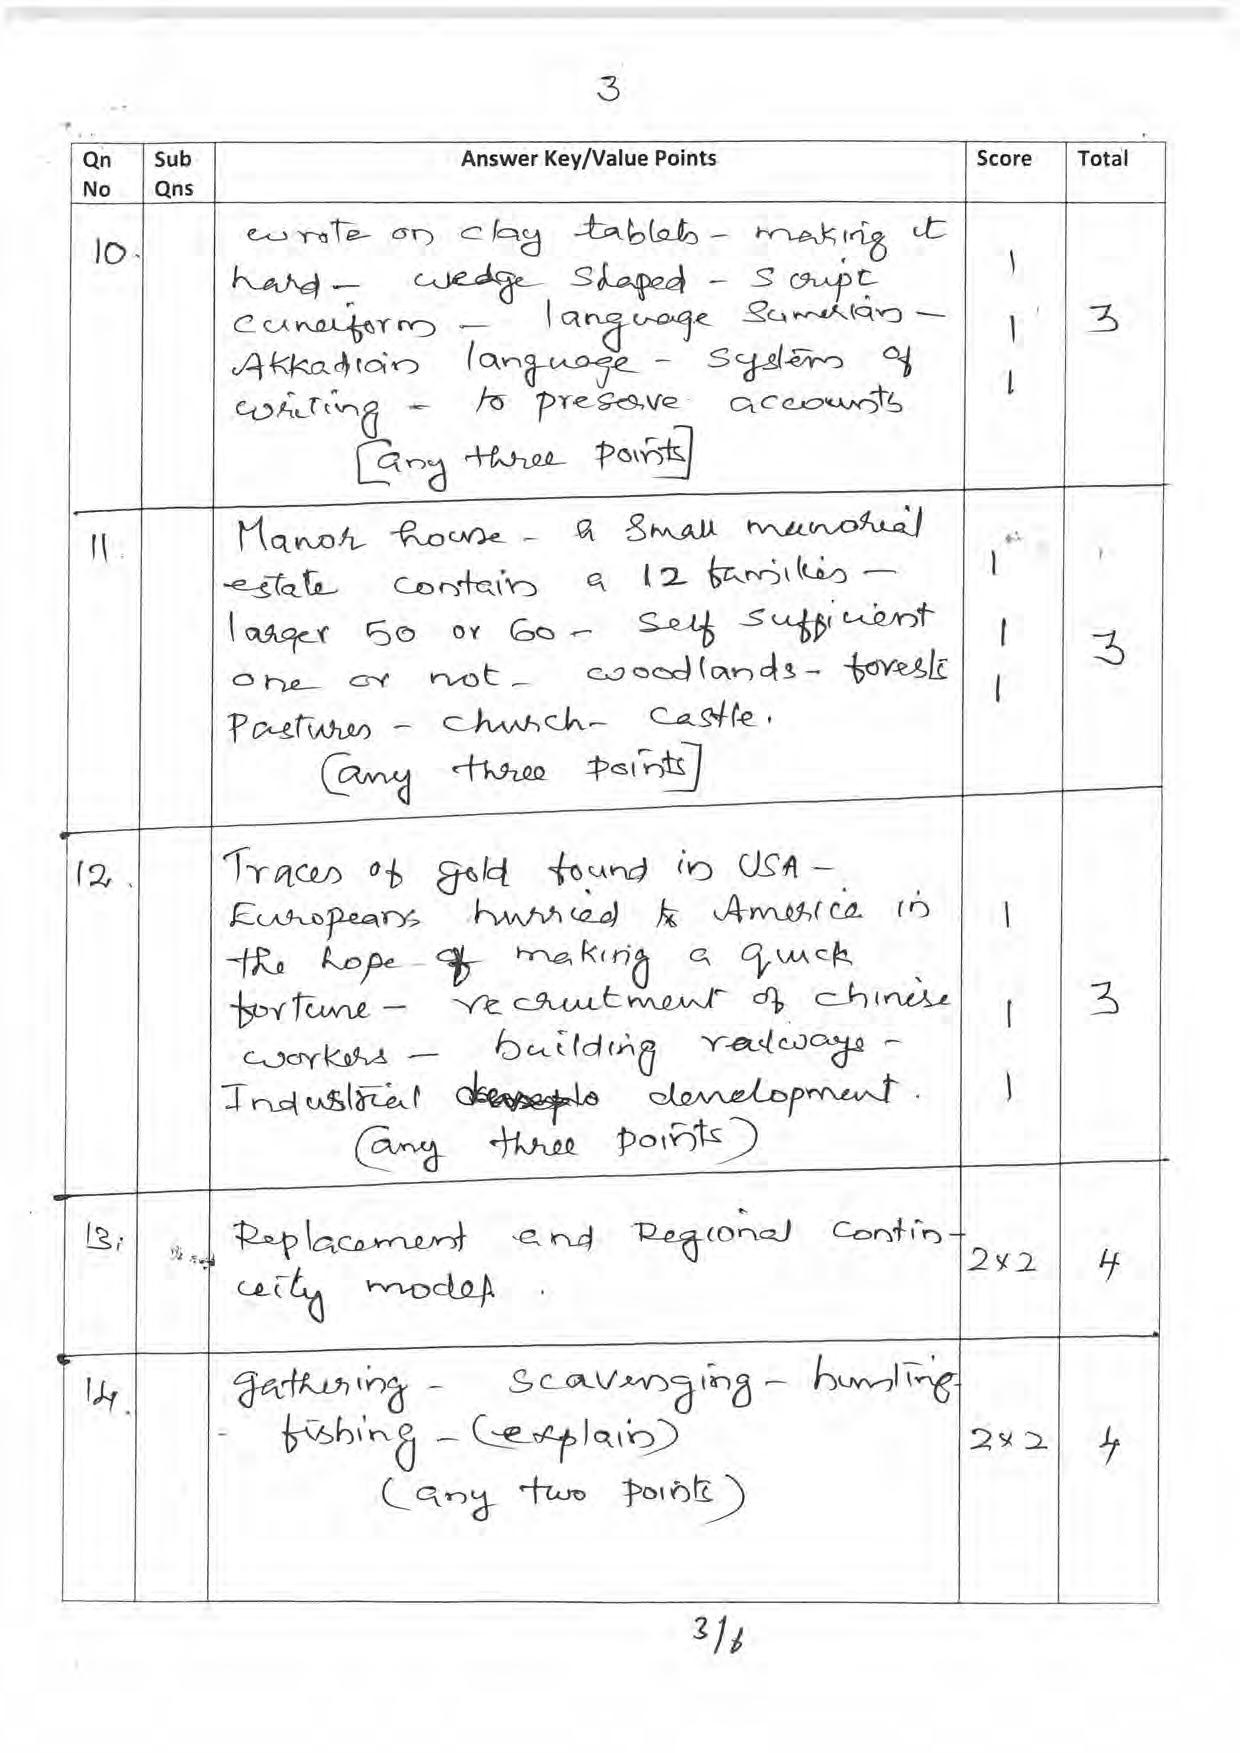 3
Qn No | Sub Qns | Answer Key/Value Points | Score | Total
10. wrote on clay tablets - making it
hard - wedge shaped - script 1
cuneiform - language Sumerian - 1 3
Akkadian language - system of
writing - to preserve accounts 1
[any three points]
11. Manor house - a small manorial
estate contain a 12 families - 1
larger 50 or 60 - self sufficient 1
one or not - woodlands - forests 1 3
Pastures - church - castle.
(any three points]
12. Traces of gold found in USA -
Europeans hurried to America in 1
the hope of making a quick
fortune - recruitment of chinese 1 3
workers - building railways -
Industrial development. 1
(any three points)
13. Replacement and Regional contin-
uity model. 2x2 4
14. gathering - scavenging - hunting
- fishing - (explain) 2x2 4
(any two points)
3/6